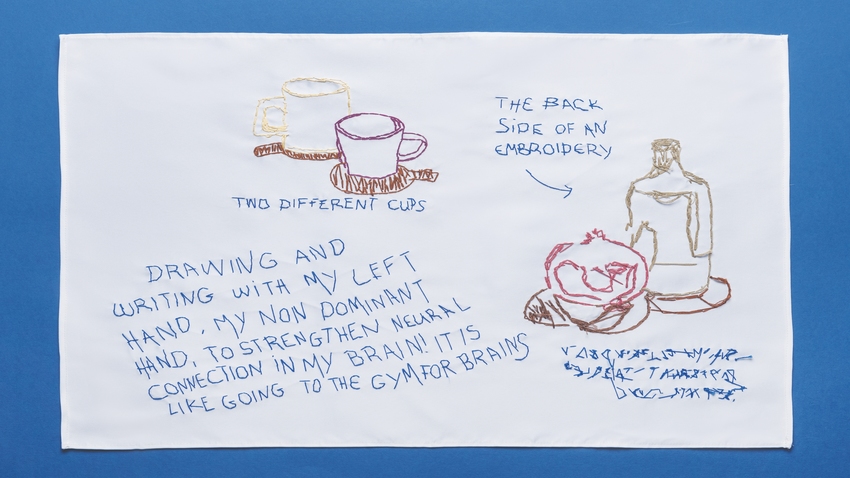 TWO DIFFERENT CUPS
THE BACK
SIDE OF AN
EMBROIDERY
DRAWING AND
WRITING WITH MY LEFT
HAND, MY NON DOMINANT
HAND, TO STRENGTHEN NEURAL
CONNECTION IN MY BRAIN! IT IS
LIKE GOING TO THE GYM FOR BRAINS